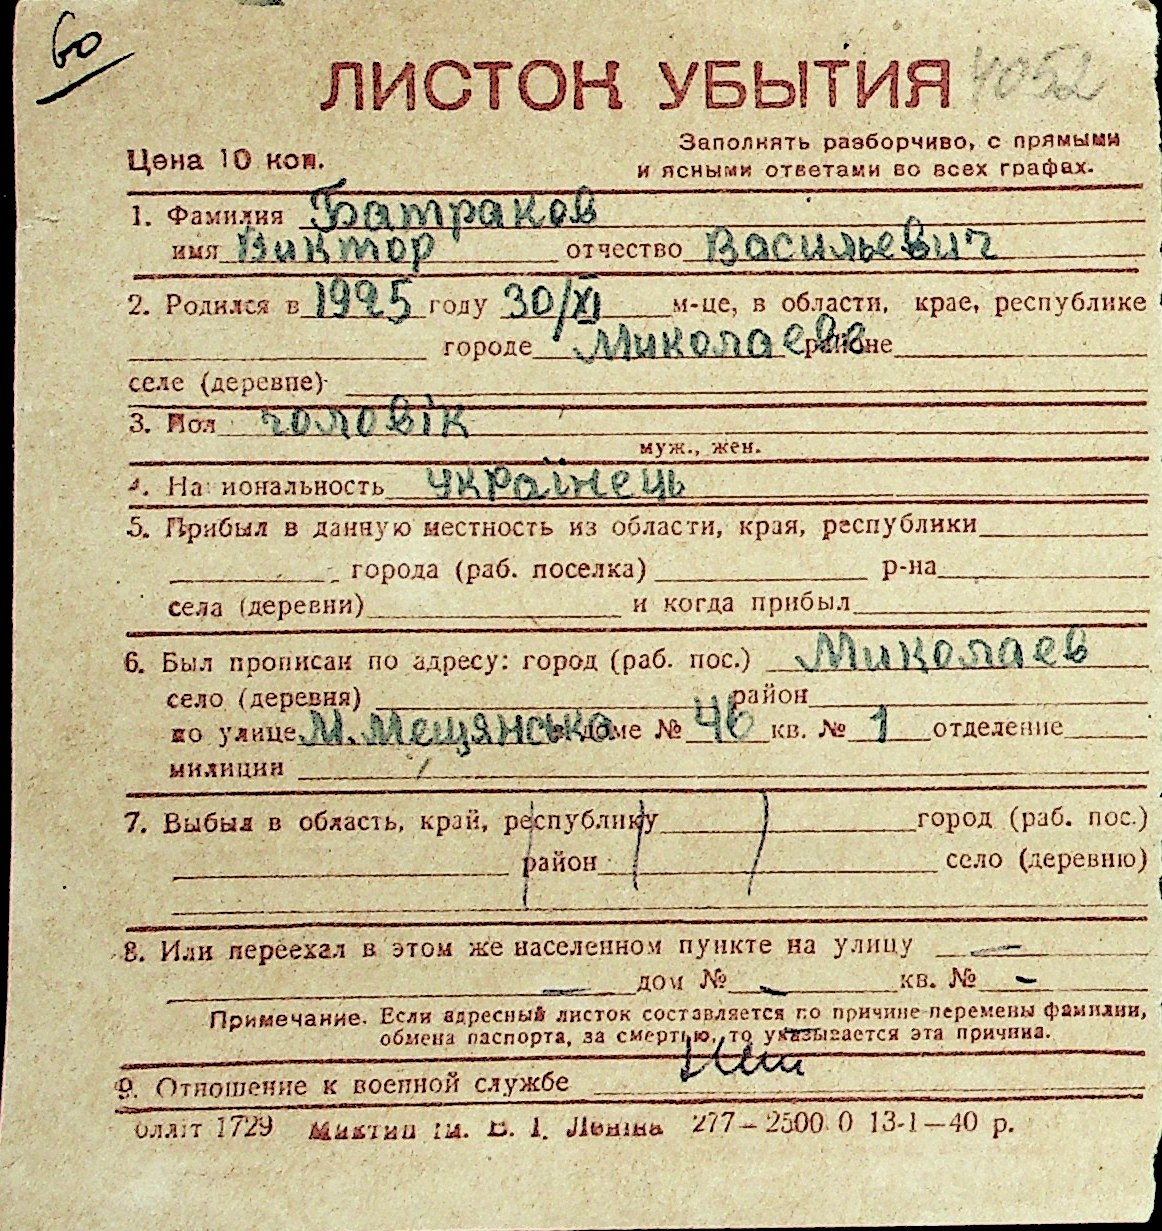 60
ЛИСТОК УБЫТИЯ 4052
Цена 10 коп.
Заполнять разборчиво, с прямыми
и ясными ответами во всех графах.
1. Фамилия Батраков
имя Виктор отчество Васильевич
2. Родился в 1925 году 30/XI м-це, в области, крае, республике
городе Миколаеве районе
селе (деревне)
3. Пол чоловік
муж., жен.
4. Национальность українець
5. Прибыл в данную местность из области, края, республики
города (раб. поселка) р-на
села (деревни) и когда прибыл
6. Был прописан по адресу: город (раб. пос.) Миколаев
село (деревня) район
по улице М. Мещянська в доме № 46 кв. № 1 отделение
милиции
7. Выбыл в область, край, республику город (раб. пос.)
район село (деревню)
8. Или переехал в этом же населенном пункте на улицу —
— дом № — кв. № —
Примечание. Если адресный листок составляется по причине перемены фамилии,
обмена паспорта, за смертью, то указывается эта причина.
9. Отношение к военной службе
блліт 1729 Миктип ім. В. І. Леніна 277—2500.0 13-1—40 р.